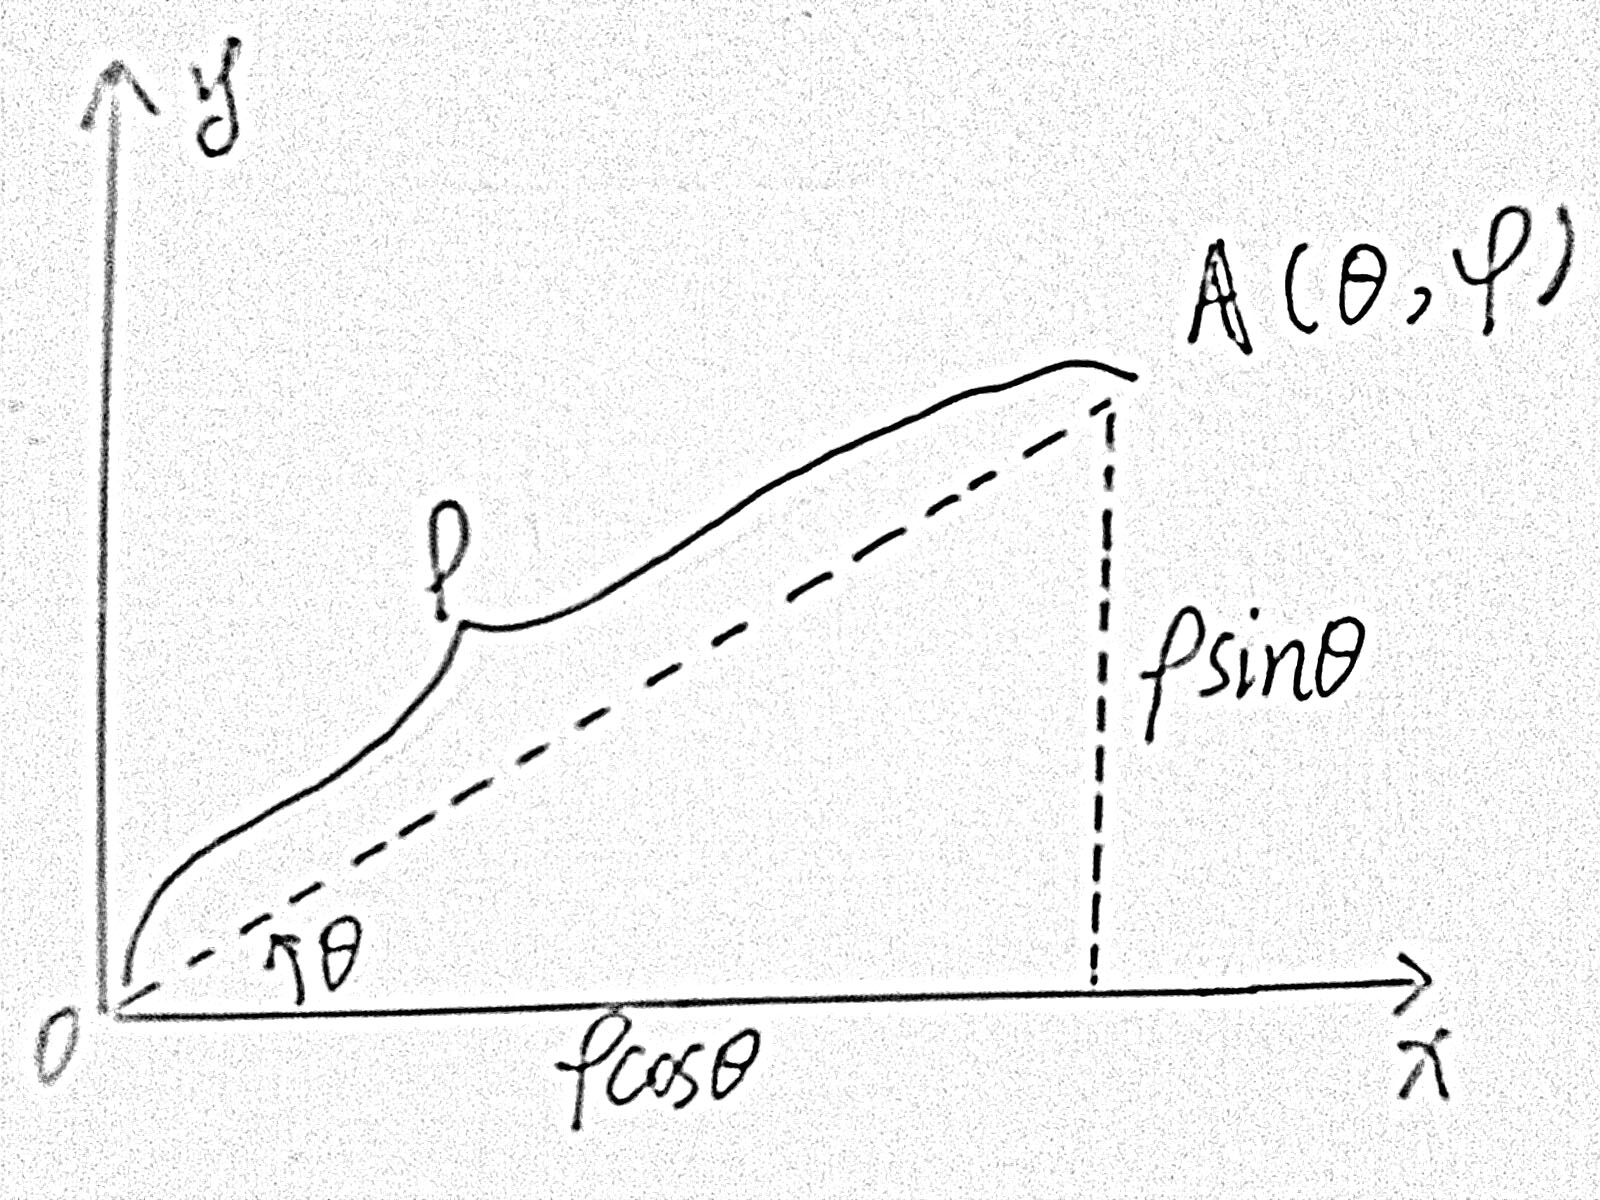 y
A(θ,φ)
ρ
ρsinθ
θ
O
ρcosθ
x